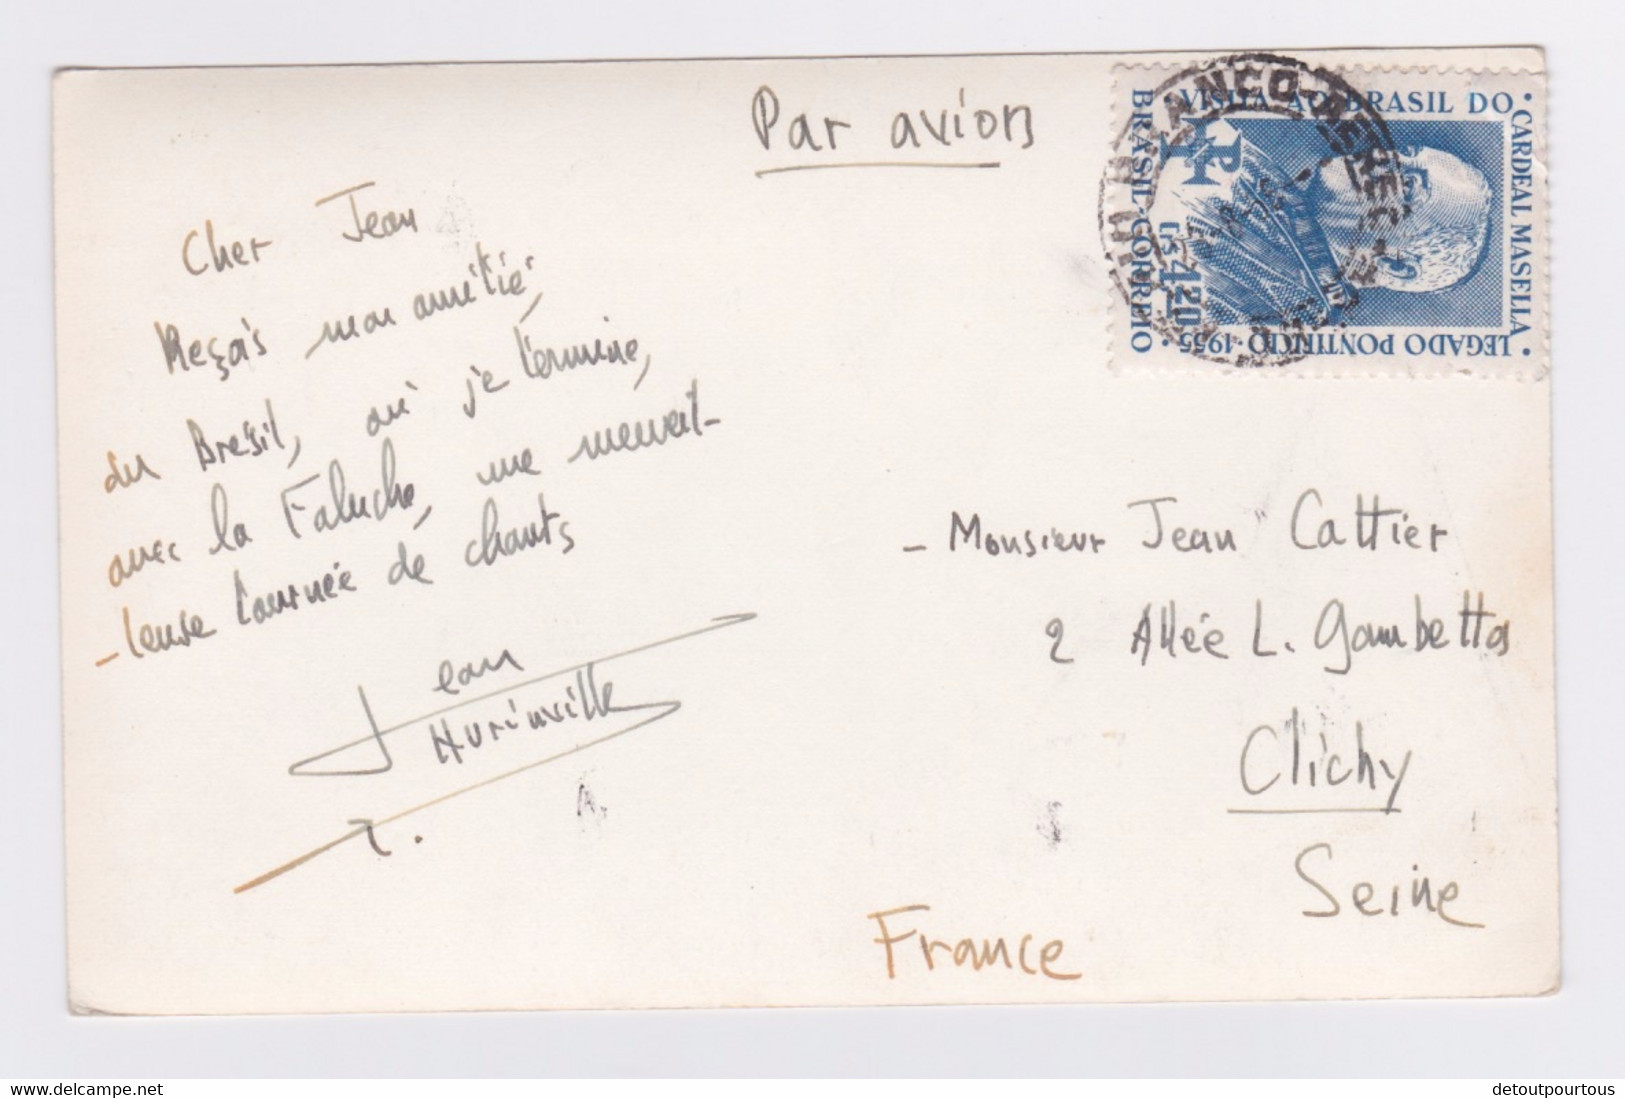 Par avion
VISITA AO BRASIL DO
CARDEAL MASELLA
LEGADO PONTIFICIO · 1955
BRASIL-CORREIO
Crs 4,20
Cher Jean
Reçois mon amitié,
du Brésil, où je termine,
avec la Faluche, une merveil-
-leuse tournée de chants
Jean
- Monsieur Jean Cattier
2 Allée L. Gambetta
Clichy
Seine
France
https://www.delcampe.net
detoutpourtous